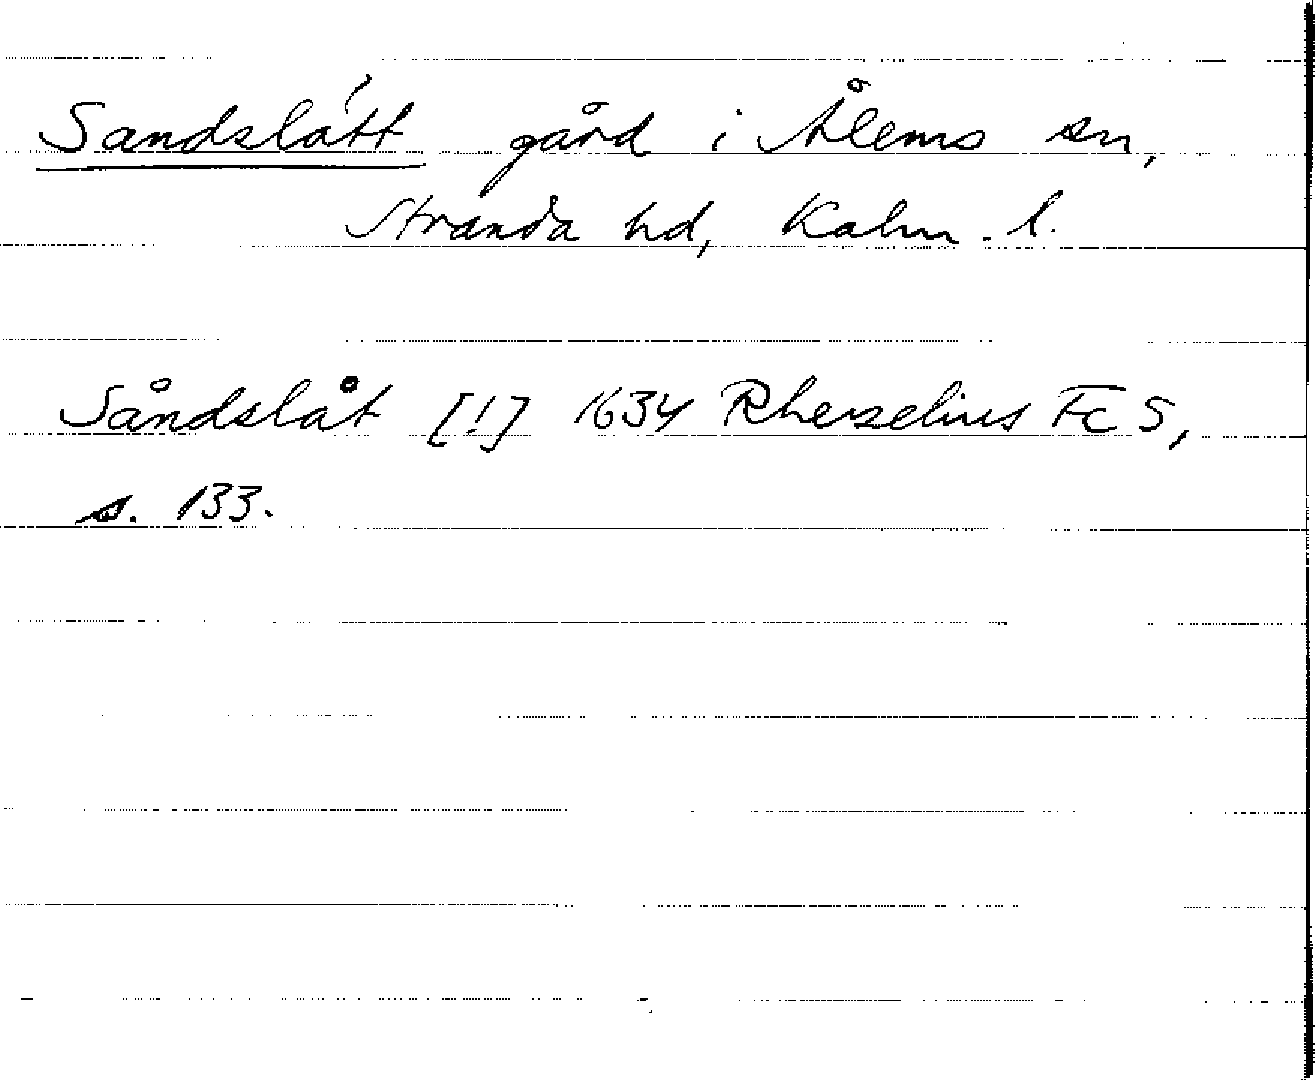 Sandslätt gård i Ålems sn,
Stranda hd, Kalm. l.
Såndslåt [!] 1634 Rhezelius Fc 5,
s. 133.